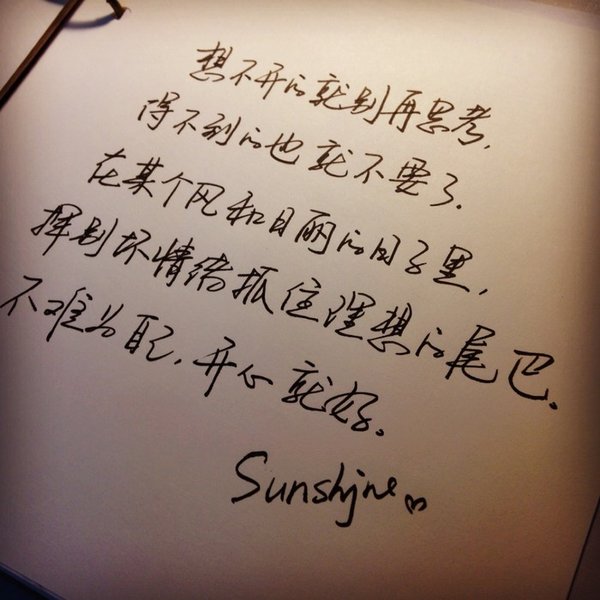 想不开的就别再思考,
得不到的也就不要了.
在某个风和日丽的日子里,
挥别坏情绪抓住理想的尾巴.
不难为自己,开心就好。
Sunshine